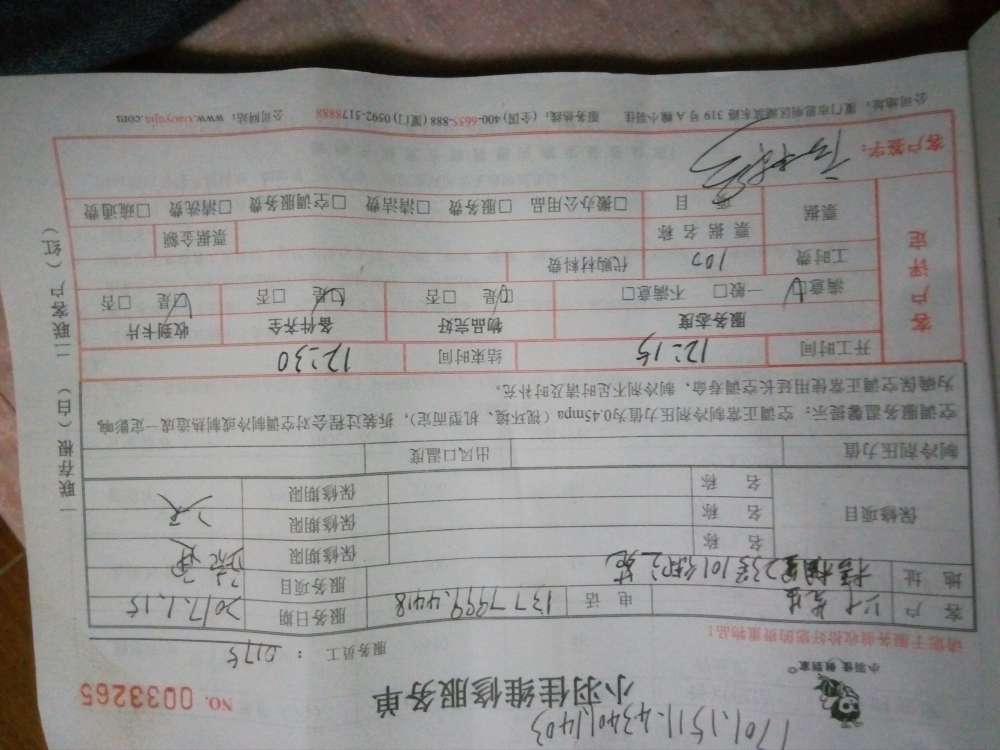 1701.1511.4340.1403
小羽佳 朝到家®
小羽佳维修服务单
NO. 0033265
请您于服务前收拾好您的贵重物品！
服务员工： 0175
客户 先生 电话 1377999.4418 服务日期 2017.1.15
地址 23 101 服务项目
保修项目 名称 保修期限
名称 保修期限
名称 保修期限
制冷剂压力值 出风口温度
空调服务温馨提示：空调正常制冷剂压力值为0.45mpa（视环境、机型而定），拆装过程会对空调制冷或制热造成一定影响
为确保空调正常使用延长空调寿命，制冷剂不足时请及时补充。
客户评定
开工时间 12:15 结束时间 12:30
服务态度 物品完好 备件齐全 收到卡片
满意☑ 一般□ 不满意□ ☑是 □否 ☑是 □否 ☑是 □否
工时费 100 代购材料费
票据 票据名称 票据金额
项目 □搬办公用品 □服务费 □清洁费 □空调服务费 □清洗费 □疏通费
客户签字：
公司地址：厦门市思明区湖滨东路 319 号 A 幢小羽佳 服务热线：(全国) 400-6655-888 (厦门) 0592-5178888 公司网站：www.xiaoyujia.com
一联存根（白）二联客户（红）